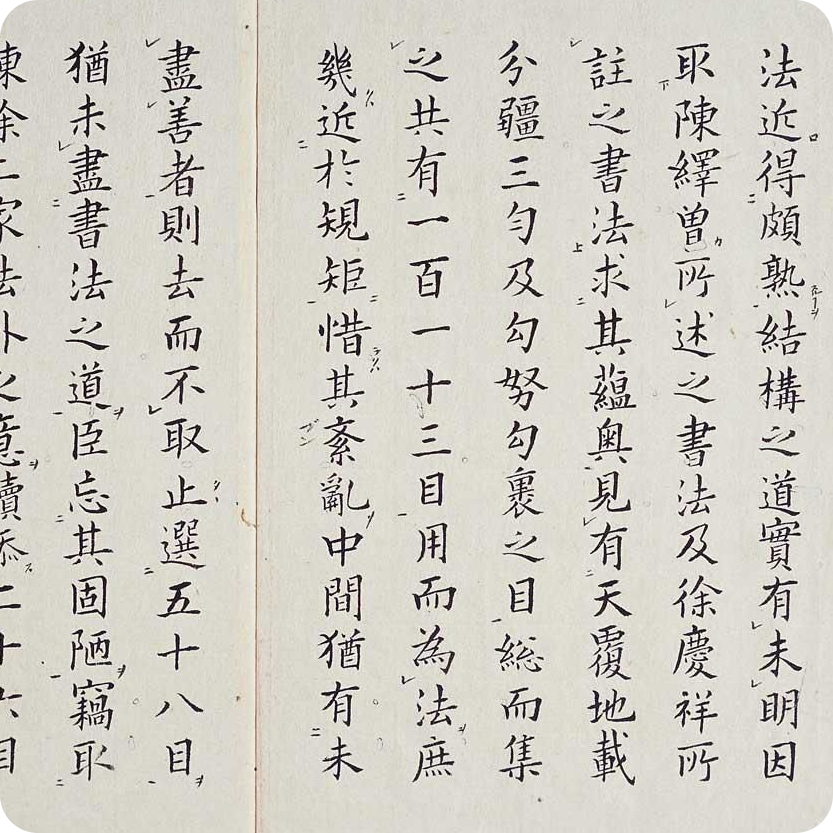 法近得頗熟結構之道實有未明因
取陳繹曾所述之書法及徐慶祥所
註之書法求其蘊奥見有天覆地載
分疆三勻及勾努勾裹之目総而集
之共有一百一十三目用而為法庶
幾近於規矩惜其紊亂中間猶有未
盡善者則去而不取止選五十八目
猶未盡書法之道臣忘其固陋竊取
陳徐二家法外之意續添二十六目